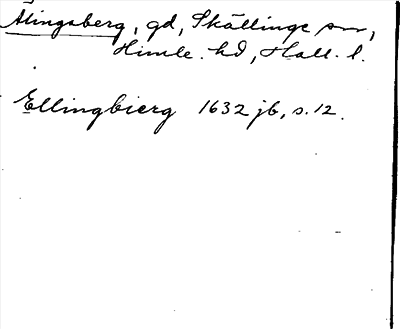 Älingsberg, gd, Skällinge sn,
Himle hd, Hall. l.
Ellingbierg 1632 jb, s. 12.